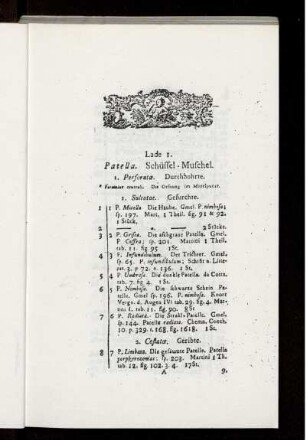 Lade 1.
Patella. Schüssel-Muschel.
1. Perforatæ. Durchbohrte.
* foramine centrali. Die Oefnung im Mittelpunct.
1. Sulcatæ. Gefurchte.
1 1 P. Die Haube. Gmel. P. nimbosa.
sp. 197. Mart. 1 Theil. fig. 91 & 92.
1 Stück.
2 — — — 2 Stücke.
3 2 P. Grisea. Die aschgraue Patella. Gmel.
P. Caffra; sp. 201. Martini 1 Theil.
tab. 11. fig. 95 1St.
4 3 Der Trichter. Gmel.
sp. 65. P. infundibulum; Schrift. a. Litterat.
3. p. 72. n. 136. 1 St.
5 4 P. Umbrosa. Die dunkle Patella. da Costa.
tab. 7. fig. 4. 1 St.
6 5 P. Nimbosa. Die schwarze Schein Patella.
Gmel sp. 196. P. nimbosa. Knorr
Vergn. d. Augen IV. tab. 29. fig. 4. Martini
1. tab. 11. fig. 90. 8 St
7 6 P. Radiata. Die Strahl-Patella. Gmel.
sp. 144. Patella radiata. Chemn. Conch.
10. p. 329. t. 168. fig. 1618. 1 St.
2. Costatæ. Geribte.
8 7 P. Limbata. Die gesäumte Patella. Patella
porphyrozonias; sp. 203. Martini 1 Th.
tab 12. fig. 102. 3. 4. 17St.
A 9.